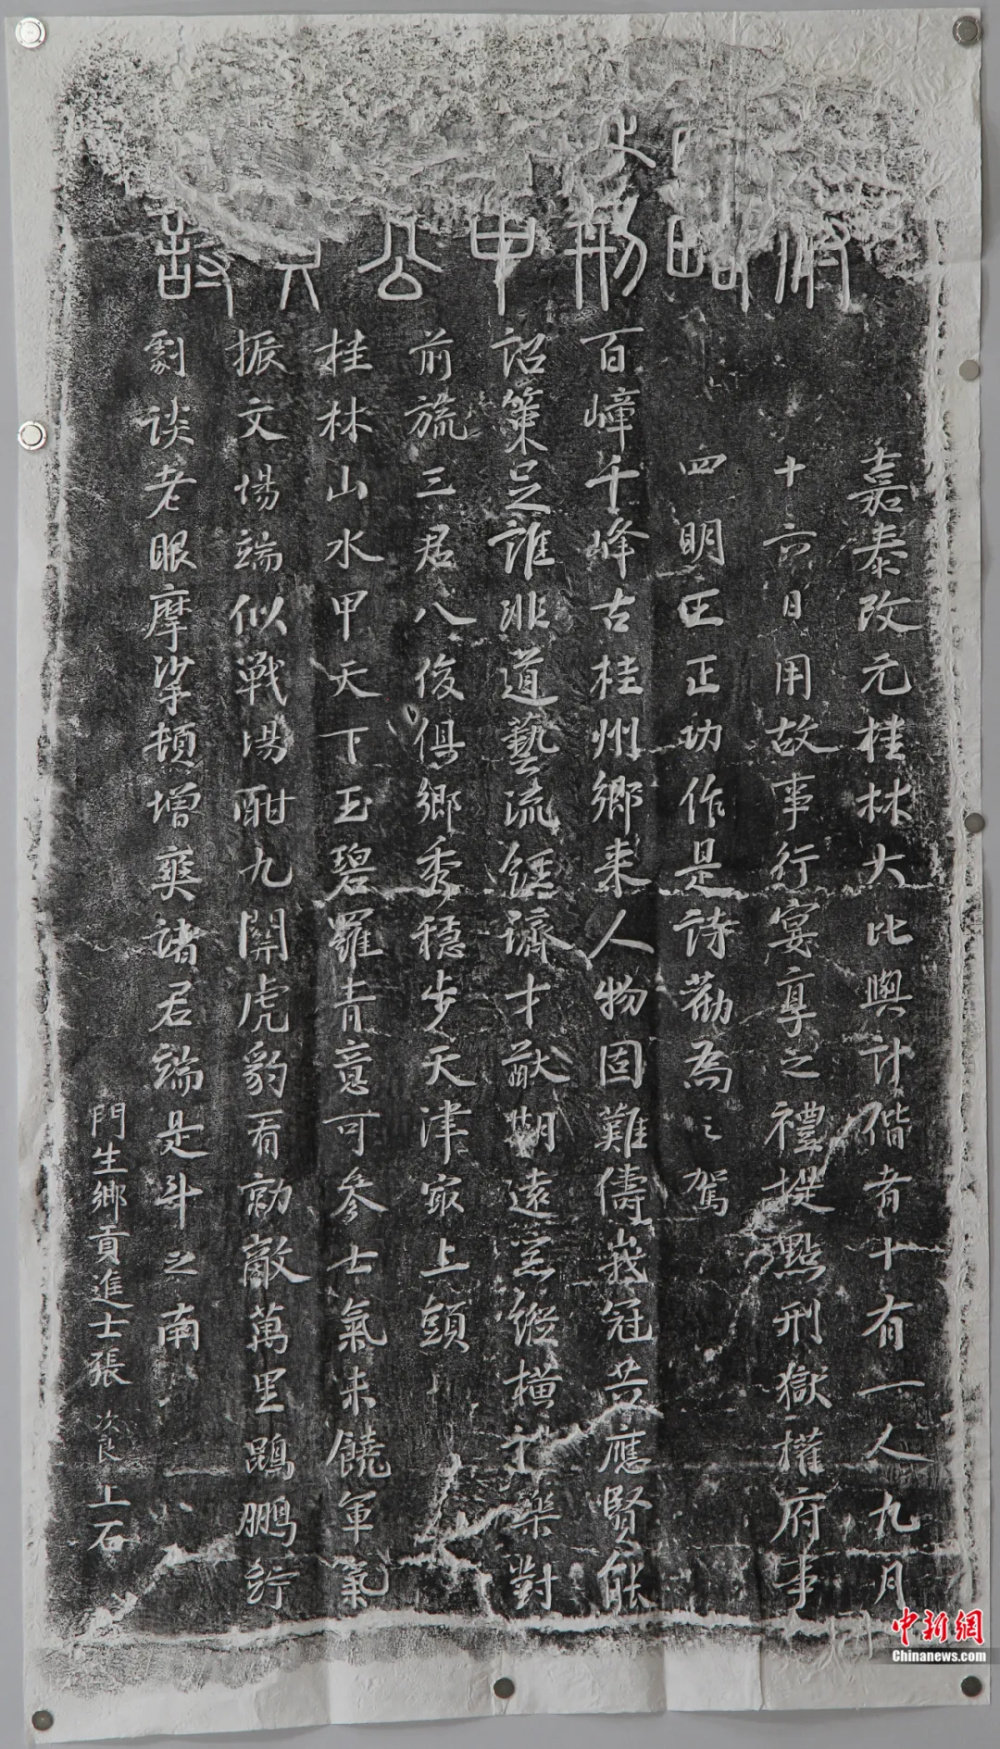 公 詩
嘉泰改元桂林大比與計偕者十有一人九月
十六日用故事行宴享之禮提點刑獄權府事
四明王正功作是詩勸為之駕
百嶂千峰古桂州鄉來人物固難儔峩冠共應賢能
詔策足誰非道藝流經濟才猷期遠器縱橫禮樂對
前旒三君八俊俱鄉秀穩步天津最上頭
桂林山水甲天下玉碧羅青意可參士氣未饒軍氣
振文場端似戰場酣九關虎豹看勍敵萬里鵾鵬佇
劇談老眼摩挲頓增爽諸君端是斗之南
門生鄉貢進士張次良上石
中新網
Chinanews.com